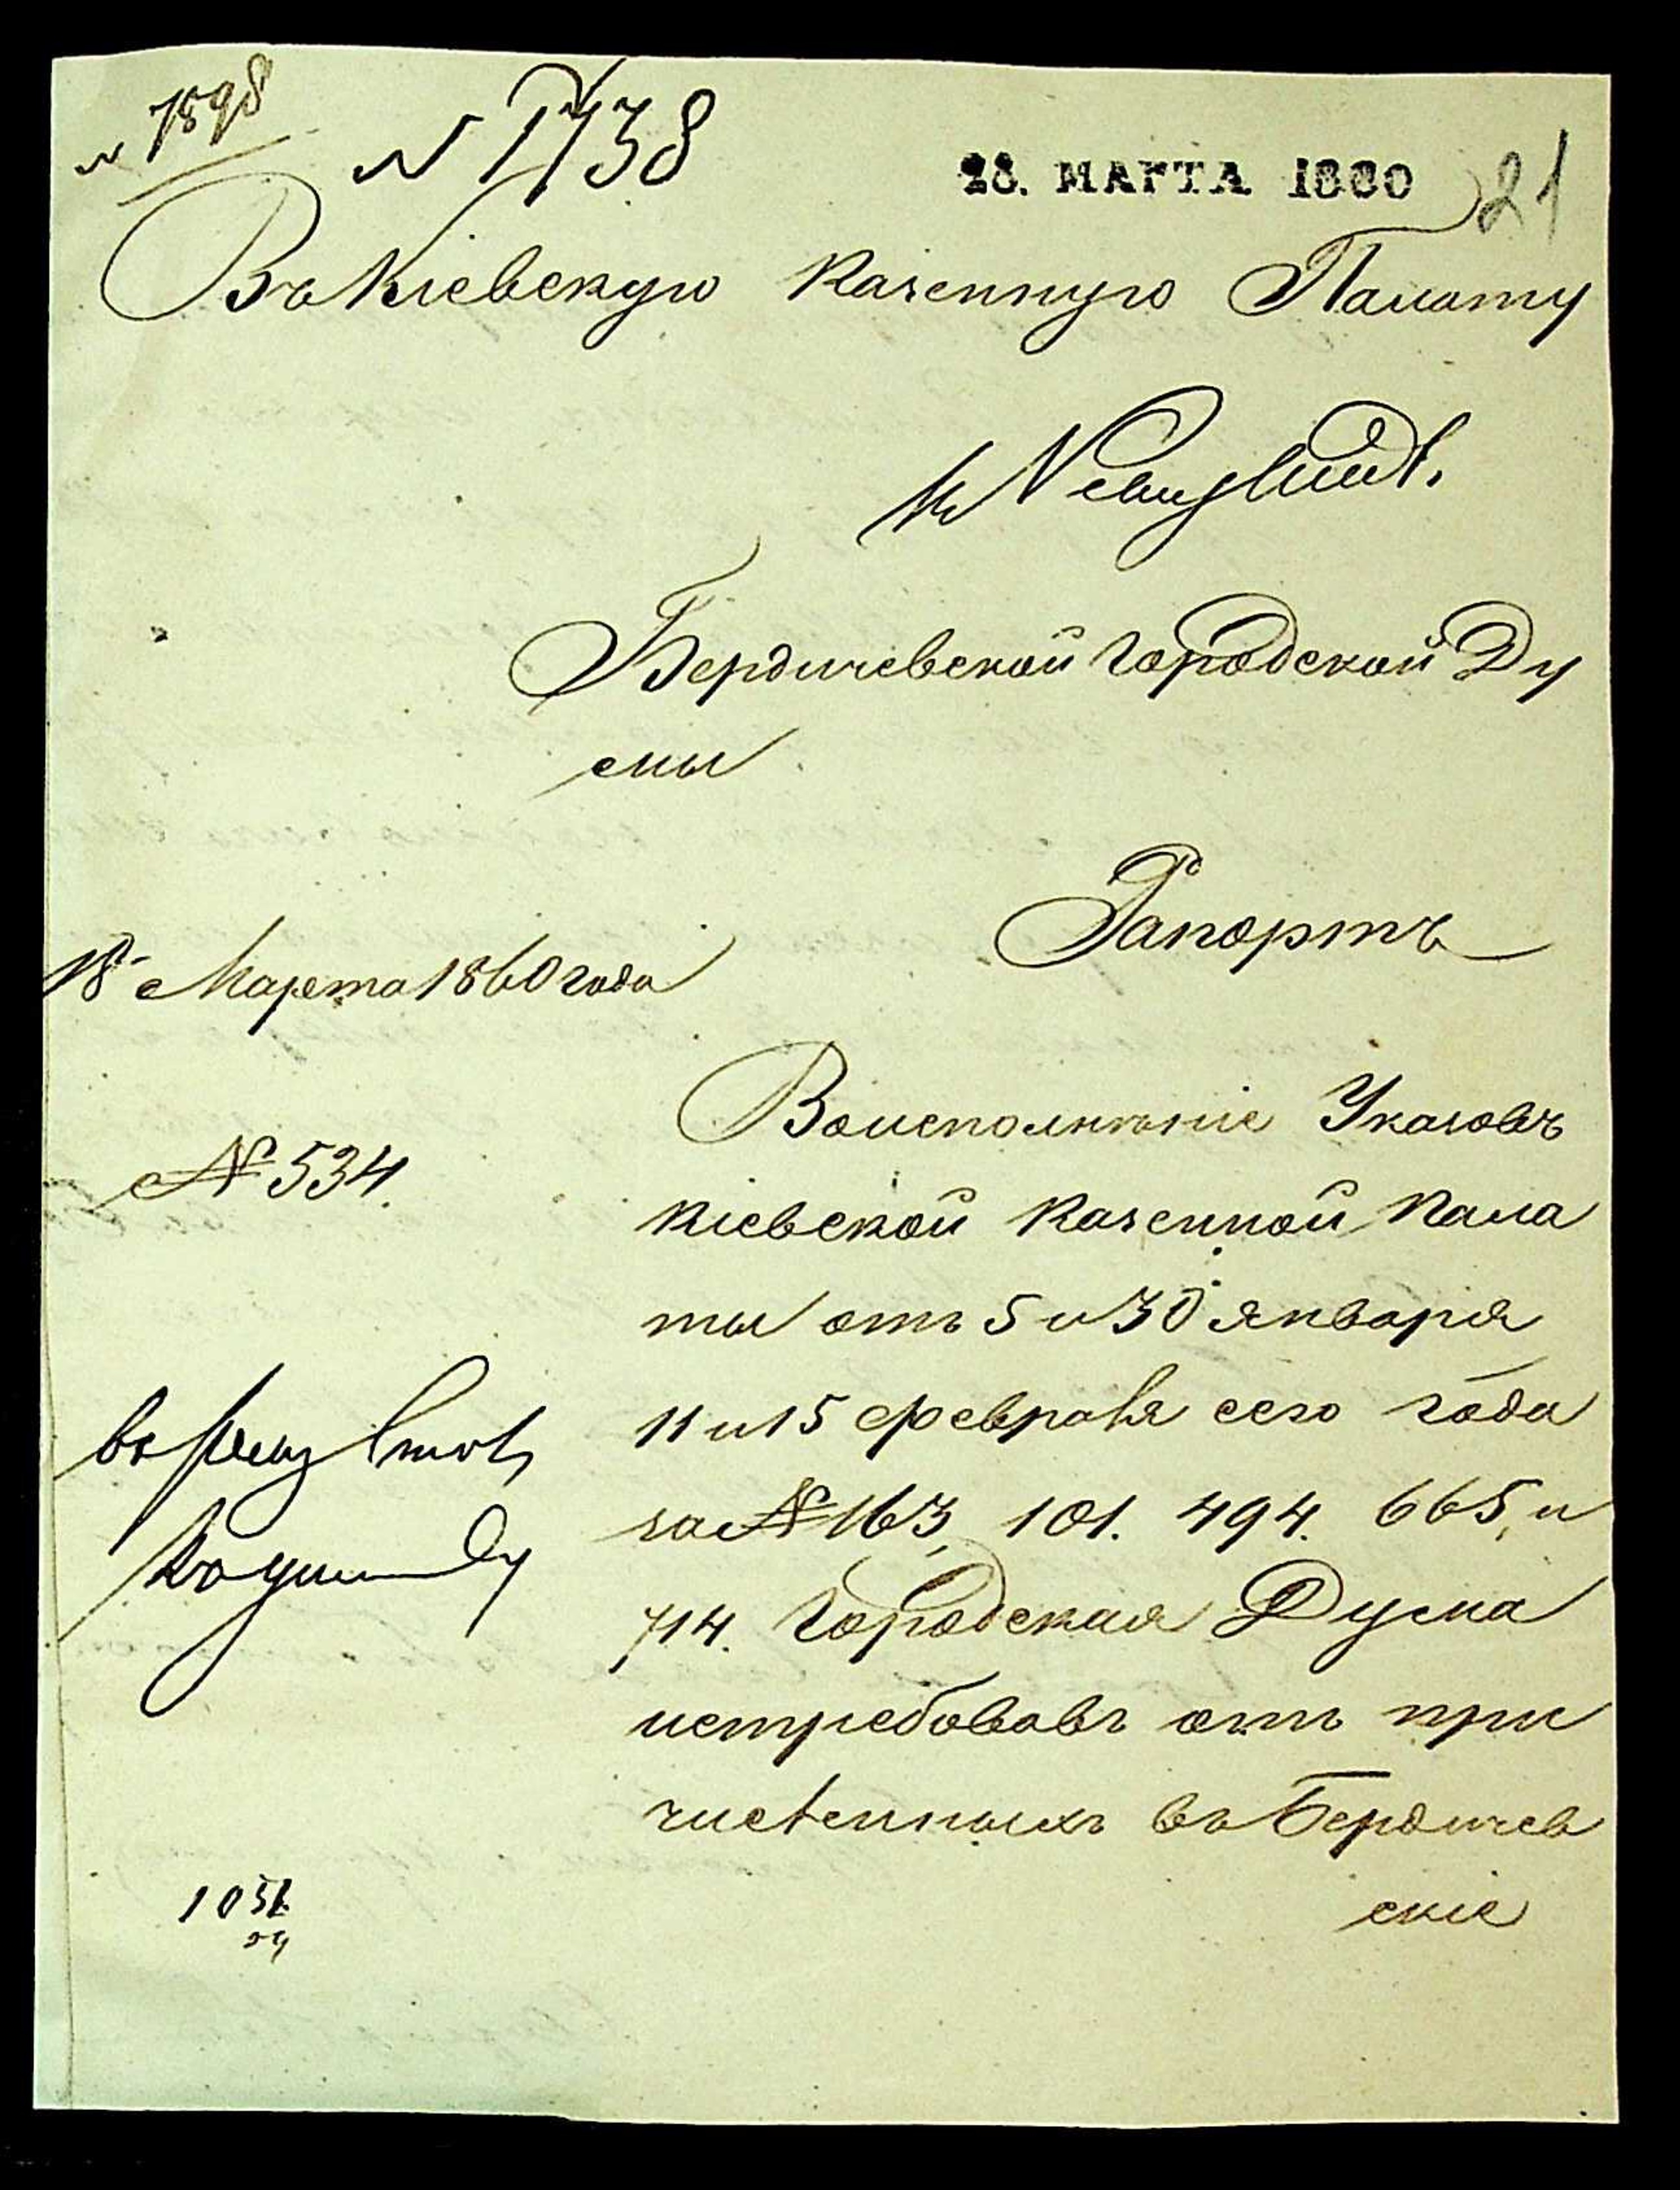 № 7898
№ 1738
28. МАРТА 1860
21
Въ Кіевскую Казенную Палату
Бердичевской Городской Ду
мы
Рапортъ
18 Марта 1860 года
№ 534.
Во исполненіе Указовъ
Кіевской Казенной Пала
ты отъ 5 и 30 Января
11 и 15 Февраля сего года
за № 163, 101. 494. 665, и
714. Городская Дума
истребовавъ отъ при
численныхъ въ Бердичев
скіе